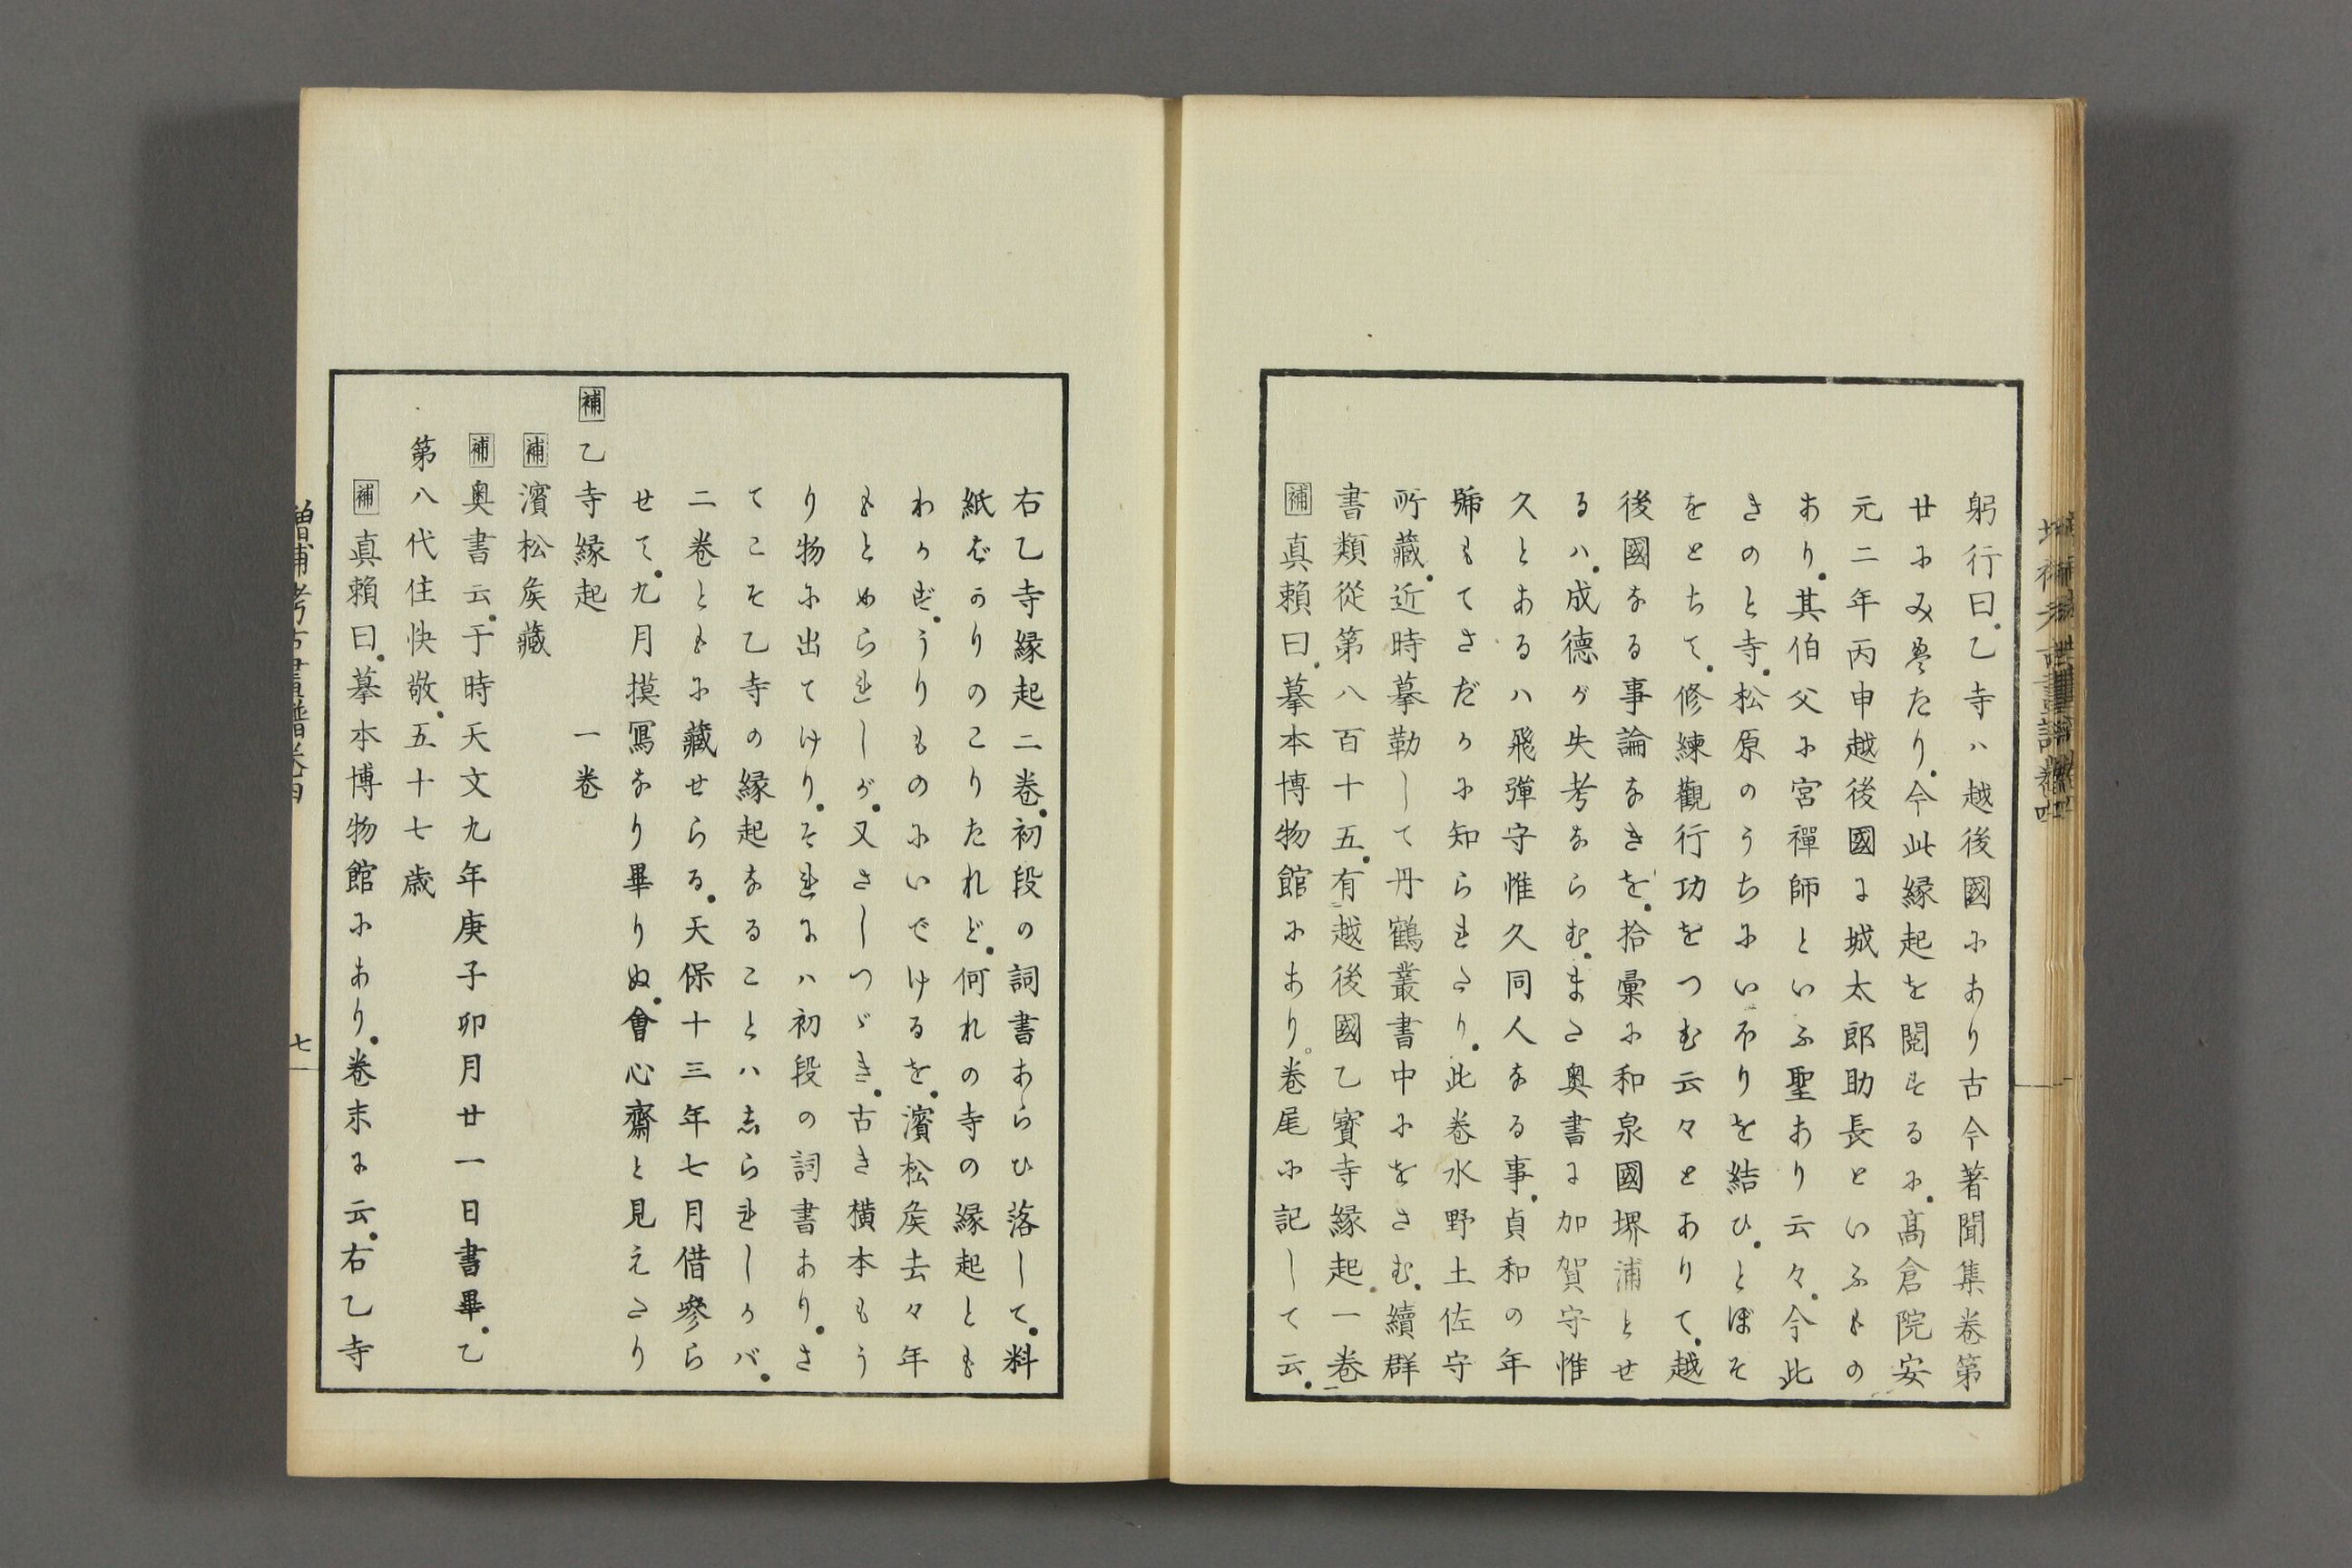 躬行曰、乙寺ハ越後國にあり古今著聞集卷第
廿にみえたり、今此縁起を閲するに、髙倉院安
元二年丙申越後國に城太郎助長といふもの
あり、其伯父に宮禪師といふ聖あり云々、今此
きのと寺、松原のうちにいおりを結ひ、とぼそ
をとちて、修練觀行功をつむ云々とありて、越
後國なる事論なきを、拾彙に和泉國堺浦とせ
るハ、成德が失考ならむ、また奥書に加賀守惟
久とあるハ飛彈守惟久同人なる事、貞和の年
號もてさだかに知られたり、此卷水野土佐守
所藏、近時摹勒して丹鶴叢書中にをさむ、續群
書類從第八百十五、有越後國乙寳寺縁起、一卷
補真賴曰、摹本博物館にあり。卷尾に記して云、
右乙寺縁起二卷、初段の詞書あらひ落して、料
紙ばかりのこりたれど、何れの寺の縁起とも
わかず、うりものにいでけるを、濱松矦去々年
もとめられしが、又さしつゞき、古き横本もう
り物に出てけり、それにハ初段の詞書あり、さ
てこそ乙寺の縁起なることハしられしかバ、
二卷ともに藏せらる、天保十三年七月借參ら
せて、九月摸寫なり畢りぬ、會心齋と見えたり
補乙寺縁起　一卷
補濱松矦藏
補奥書云、于時天文九年庚子卯月廿一日書畢、乙
第八代住快敬、五十七歳
補真賴曰、摹本博物館にあり、卷末に云、右乙寺
增補考古畫譜卷四
七一